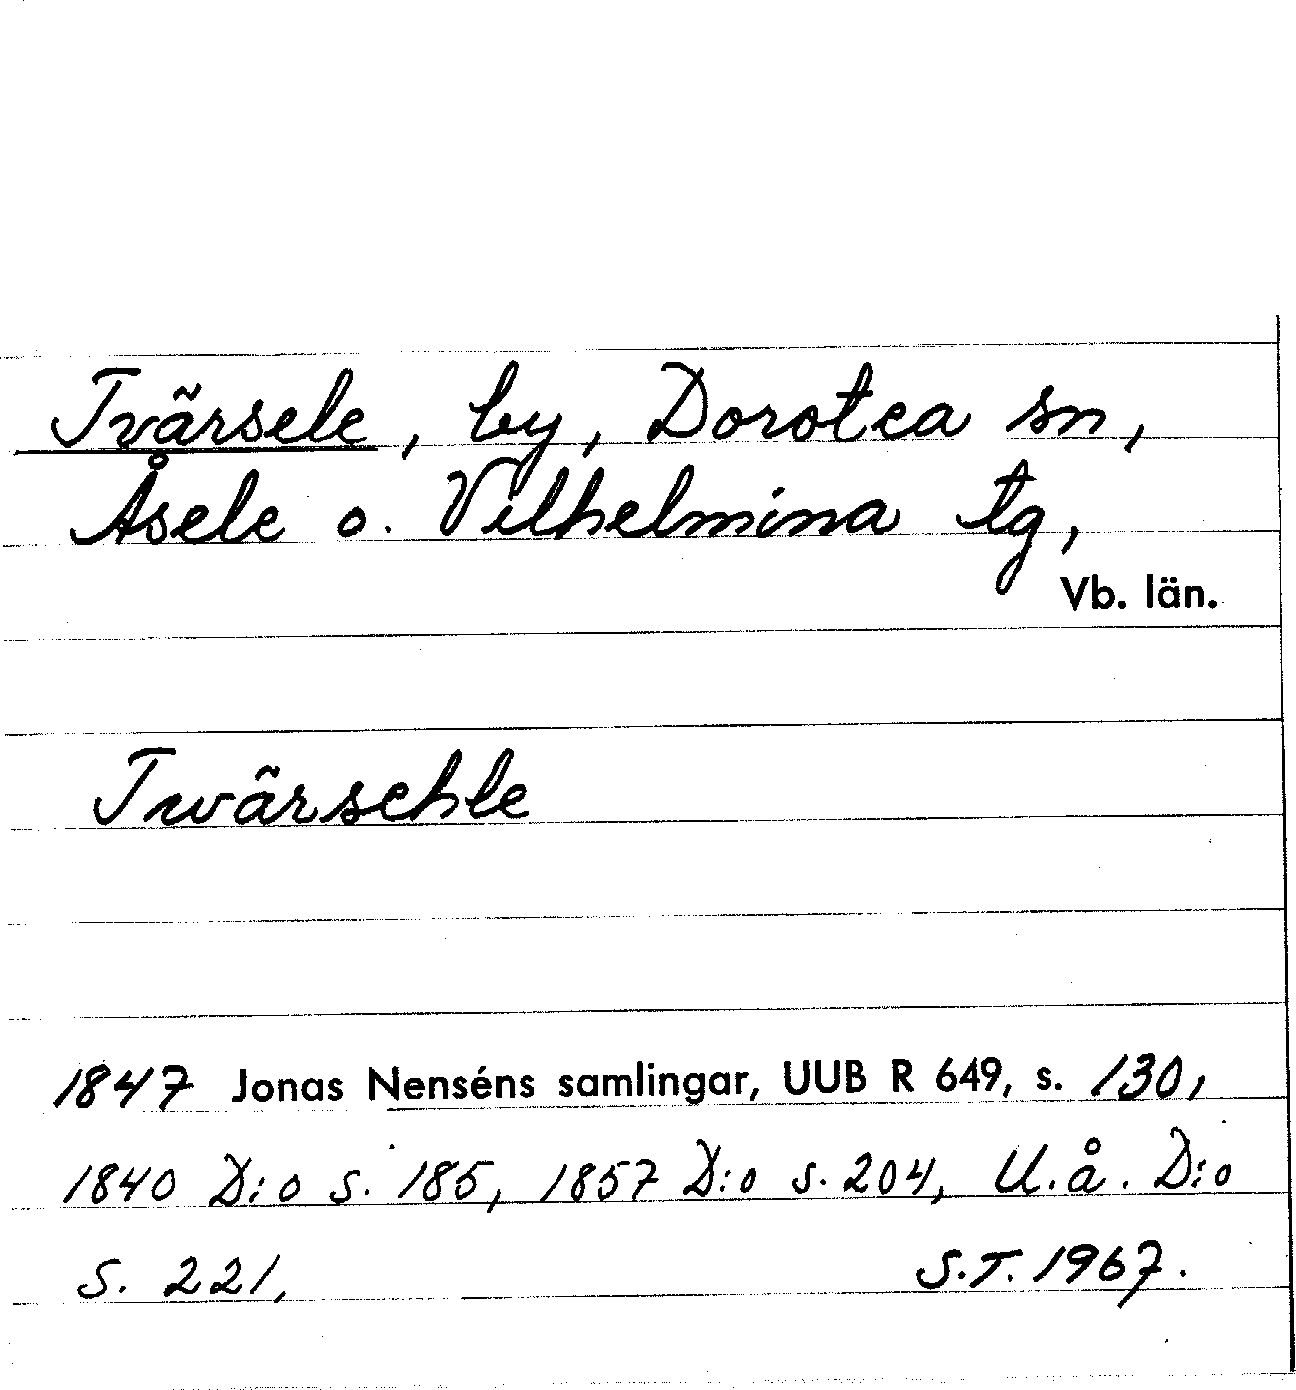 Tvärsele, by, Dorotea sn,
Åsele o. Vilhelmina tg,
Vb. län.
Twärsehle
1847 Jonas Nenséns samlingar, UUB R 649, s. 130,
1840 D:o s. 185, 1857 D:o s. 204, U.å. D:o
s. 221,
S.T. 1967.